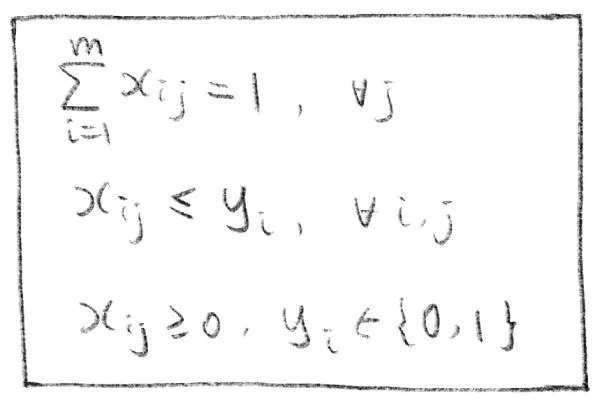 ∑_{i=1}^{m} x_{ij} = 1, ∀j
x_{ij} ≤ y_i, ∀i,j
x_{ij} ≥ 0, y_i ∈ {0,1}